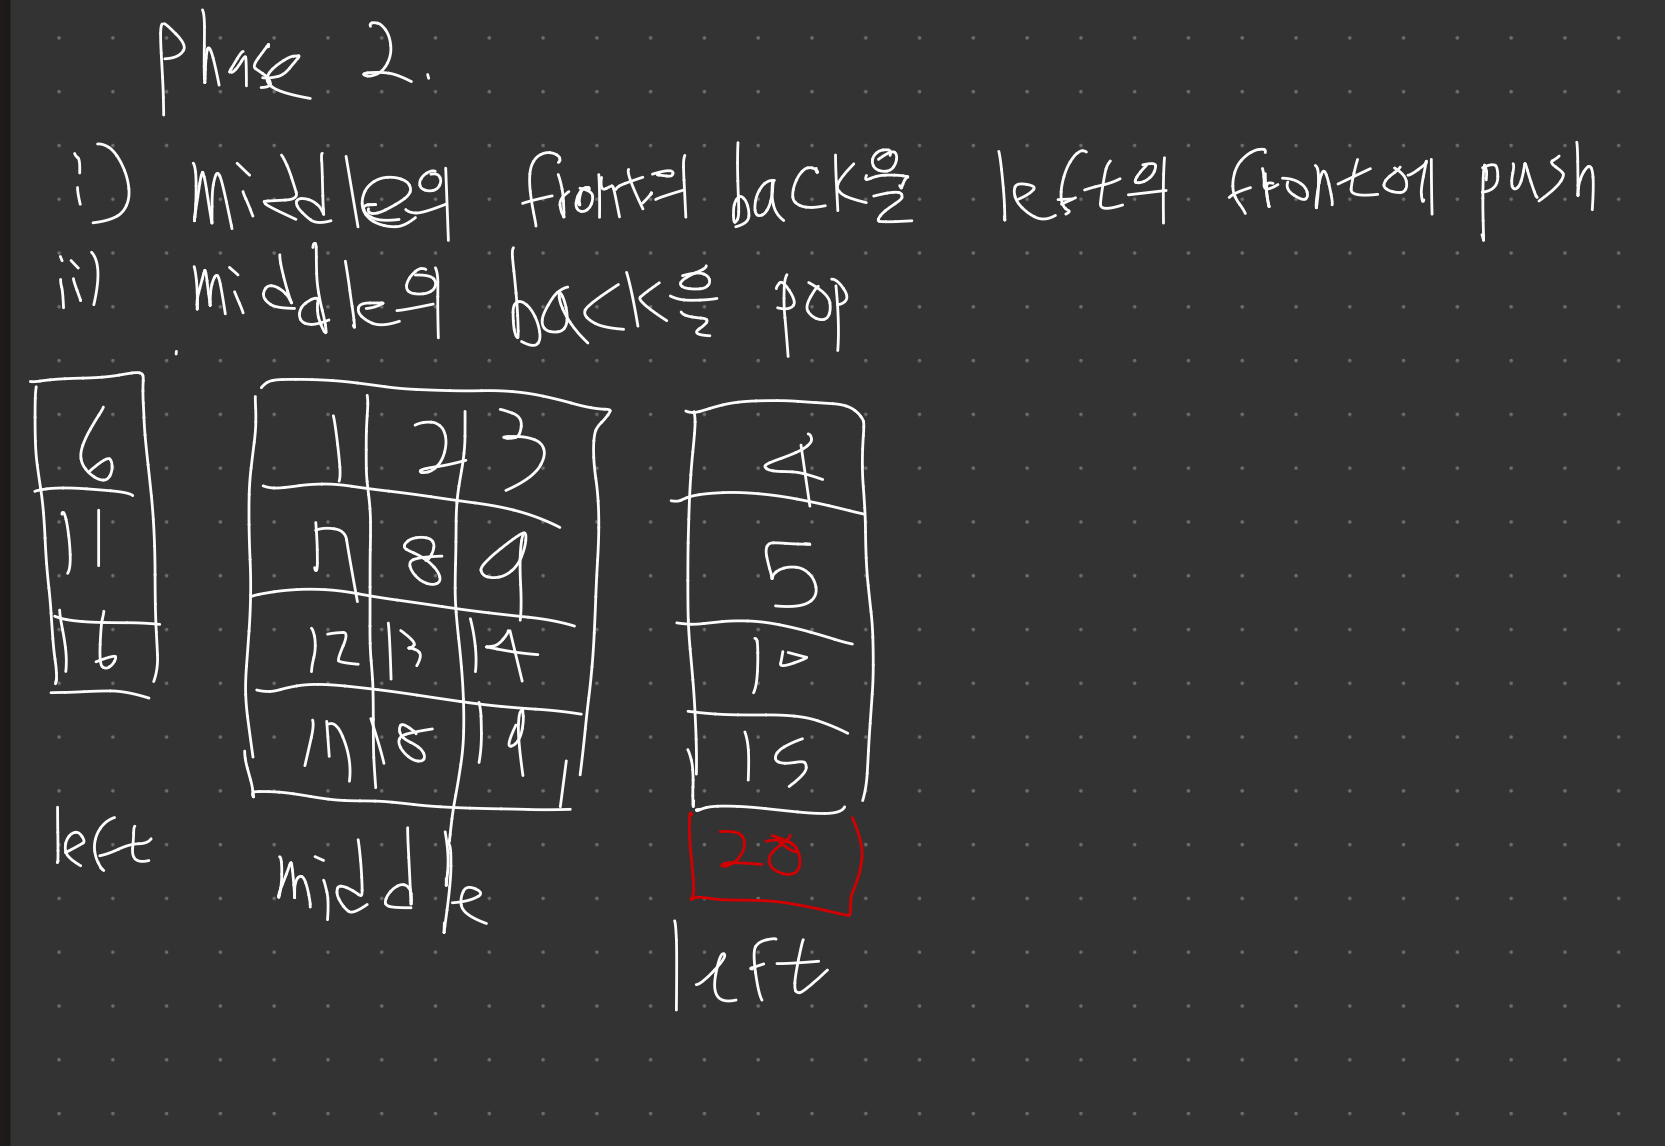 phase 2.
i) middle의 front의 back을 left의 front에 push
ii) middle의 back을 pop
6 1 2 3 4
11 7 8 9 5
16 12 13 14 10
17 18 19 15
20
left middle left